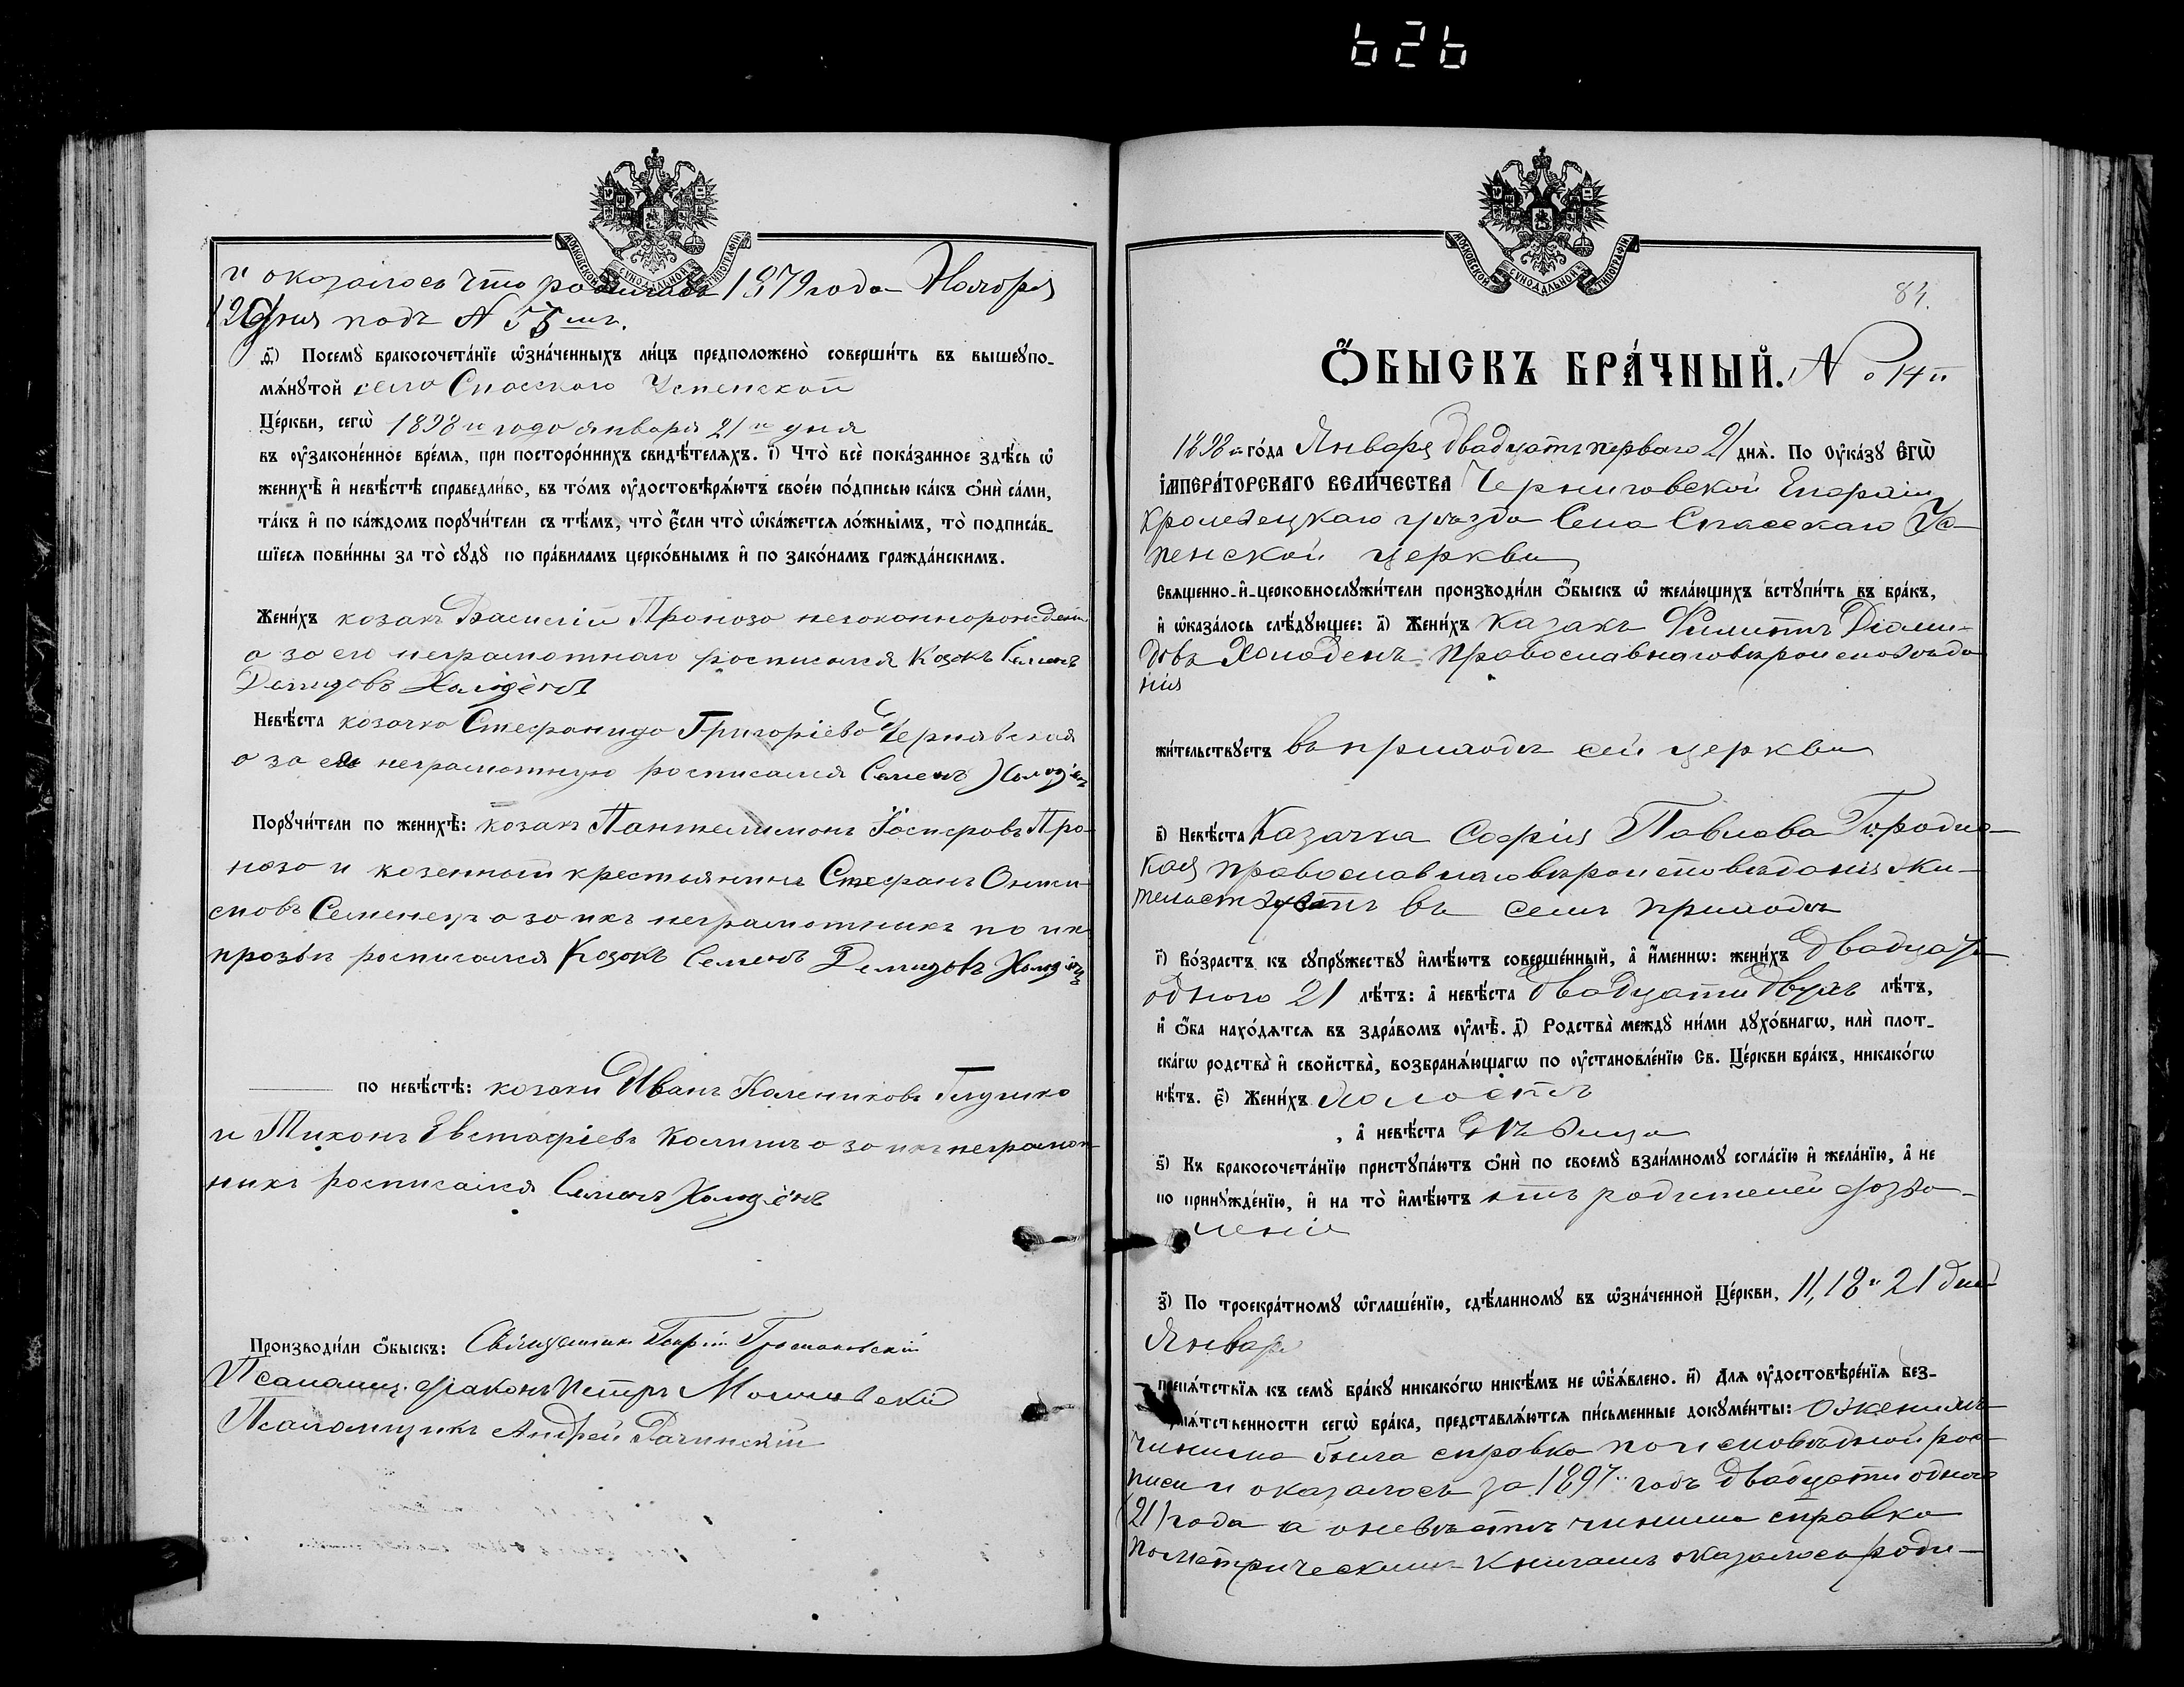 626
МОСКОВСКОЙ СѴНОДАЛЬНОЙ ТИПОГРАФІИ
и оказалось что родилась 1879 года Ноября
12 дня подъ N 55 мъ.
д҃) Посемꙋ̀ бракосочета́нїе ѡ҆зна́ченныхъ ли́цъ предположено̀ соверши́ть въ вышеꙋпо-
мѧ́нꙋтой села Спасскаго Успенской
Це́ркви, сегѡ̀ 1898 го года января 21 го дня
въ ᲂу҆законе́нное вре́мѧ, при посторо́ннихъ свидѣ́телѧхъ. і҃) Что̀ всѐ пока́занное здѣ́сь ѡ҆
женихѣ̀ и҆ невѣ́стѣ справедли́во, въ то́мъ ᲂу҆достовѣрѧ́ютъ свое́ю по́дписью ка́къ ѻ҆нѝ са́ми,
та́къ и҆ по ка́ждомъ порꙋчи́тели съ тѣ́мъ, что̀ є҆́сли что̀ ѡ҆ка́жетсѧ ло́жнымъ, то̀ подписа́в-
шїесѧ пови́нны за то̀ сꙋдꙋ̀ по пра́виламъ церко́внымъ и҆ по зако́намъ гражда́нскимъ.
Жени́хъ козакъ Василій Проноза незаконнорожден
а за его неграмотнаго росписался Козакъ Семенъ
Демидовъ Холоденъ
Невѣ́ста козачка Стефанида Григоріева Чернявская
а за ея неграмотную росписался Семенъ Холоденъ
Порꙋчи́тели по женихѣ̀: козакъ Пантелимонъ Іосифовъ Про-
ноза и казенный крестьянинъ Стефанъ Ониси-
мовъ Семенецъ а за ихъ неграмотныхъ по их
прозьбѣ росписался Козакъ Семенъ Демидовъ Холоденъ
по невѣ́стѣ: козаки Иванъ Калениковъ Глушко
и Тихонъ Евстафіевъ Калишъ а за ихъ неграмот
ныхъ росписался Семенъ Холоденъ
Производи́ли ѻ҆́быскъ: Священникъ Громаковскій
Псаломщ. діаконъ Петръ
Псаломщикъ Андрей Рачинскій
МОСКОВСКОЙ СѴНОДАЛЬНОЙ ТИПОГРАФІИ
84.
Ѻ҆́БЫСКЪ БРА́ЧНЫЙ. N 14 й
1898 го го́да Января двадцать перваго 21 днѧ̀. По Оу҆ка́зꙋ Є҆гѡ̀
І҆МПЕРА́ТОРСКАГО ВЕЛИ́ЧЕСТВА Черниговской Епархіи
Кролевецкаго уѣзда Села Спасскаго Ус-
пенской церкви
Свѧщенно-и҆-церковнослꙋжи́тели производи́ли ѻ҆́быскъ ѡ҆ жела́ющихъ встꙋпи́ть въ бра́къ,
и҆ ѡ҆каза́лось слѣ́дꙋющее: а҃) Жени́хъ Казакъ Филиппъ Діоми-
довъ Холоденъ, православнаго вѣроисповѣда
нія
жи́тельствꙋетъ въ приходѣ сей церкви
в҃) Невѣ́ста Казачка Софія Павлова Городис-
кая православнаго вѣроисповѣданія жи-
тельствуетъ въ семъ приходѣ
г҃) Во́зрастъ къ сꙋпрꙋ́жествꙋ и҆мѣ́ютъ соверше́нный, а҆ и҆́меннѡ: жени́хъ двадцать
одного 21 лѣ́тъ: а҆ невѣ́ста двадцати двухъ лѣ́тъ,
и҆ ѻ҆́ба нахо́дѧтсѧ въ здра́вомъ ᲂу҆мѣ̀. д҃) Родства̀ междꙋ̀ ни́ми дꙋхо́внагѡ, илѝ плот-
ска́гѡ родства̀ и҆ свойства̀, возбранѧ́ющагѡ по ᲂу҆становле́нїю Св. Це́ркви бра́къ, никако́гѡ
нѣ́тъ. є҃) Жени́хъ холостъ
, а҆ невѣ́ста дѣвица
ѕ҃) Къ бракосочета́нїю пристꙋпа́ютъ ѻ҆нѝ по своемꙋ̀ взаи́мномꙋ согла́сїю и҆ жела́нїю, а҆ не
по принꙋжде́нїю, и҆ на то̀ и҆мѣ́ютъ отъ родителей дозво-
леніе
з҃) По троекра́тномꙋ ѡ҆глаше́нїю, сдѣ́ланномꙋ въ ѡ҆зна́ченной Це́ркви, 11, 18 и 21 дней
Января
препѧ́тствїѧ къ семꙋ̀ бра́кꙋ никако́гѡ никѣ́мъ не ѡ҆б̾ѧ́влено. и҃) Для ᲂу҆достовѣре́нїѧ без-
препѧ́тственности сегѡ̀ бра́ка, представлѧ́ютсѧ пи́сьменные докꙋме́нты: О женихѣ
чинима была справка по исповѣдной рос-
писи и оказалось за 1897 й годъ двадцати одного
(21) года а о невѣстѣ чинима справка
по метрическимъ книгамъ оказалось роди-